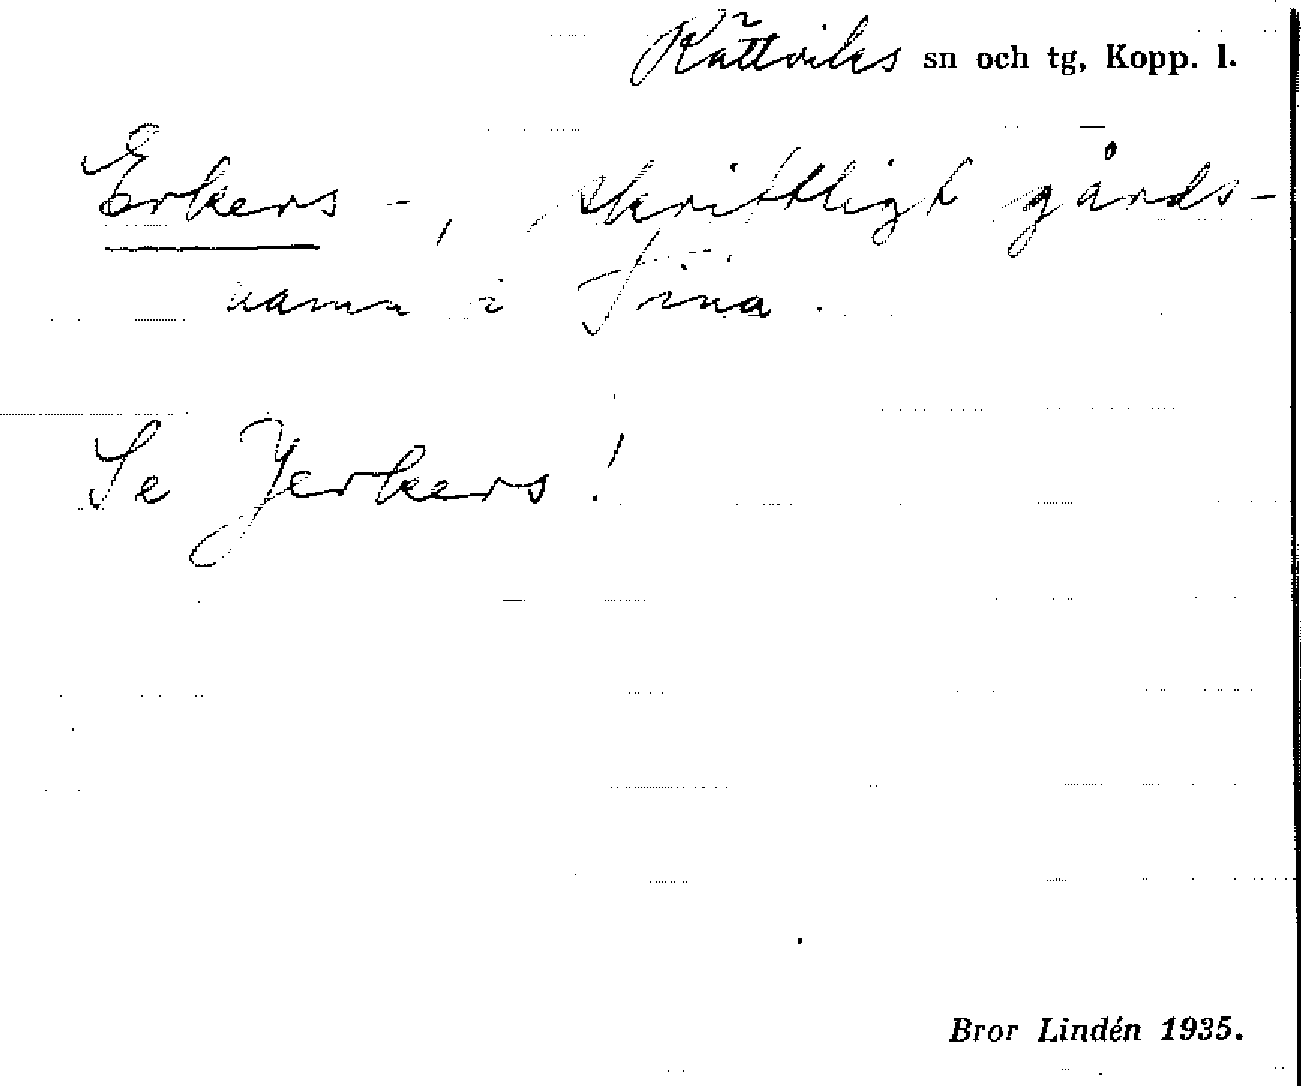 Rättviks sn och tg, Kopp. l.
Erkers -, skriftligt gårds-
namn i Sina.
Se Jerkers!
Bror Lindén 1935.